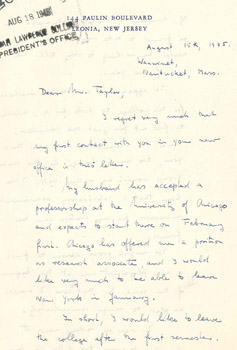 AUG 18 1945
SARAH LAWRENCE COLLEGE
PRESIDENT'S OFFICE
144 PAULIN BOULEVARD
LEONIA, NEW JERSEY
August 15th, 1945.
Wauwinet,
Nantucket, Mass.
Dear Mr. Taylor,
I regret very much that
my first contact with you in your new
office is this letter.
My husband has accepted a
professorship at the University of Chicago
and expects to start there on February
first. Chicago has offered me a position
as research associate, and I would
like very much to be able to leave
New York in January.
In short, I would like to leave
the college after the first semester.